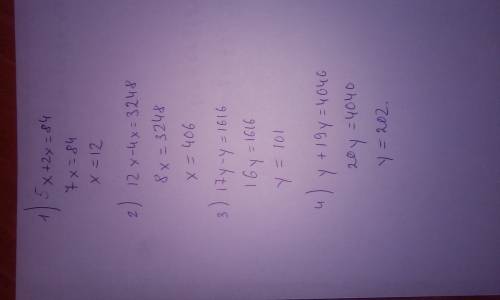 1) 5x+2x=84
7x=84
x=12
2) 12x-4x=3248
8x=3248
x=406
3) 17y-y=1616
16y=1616
y=101
4) y+19y=4046
20y=4040
y=202.